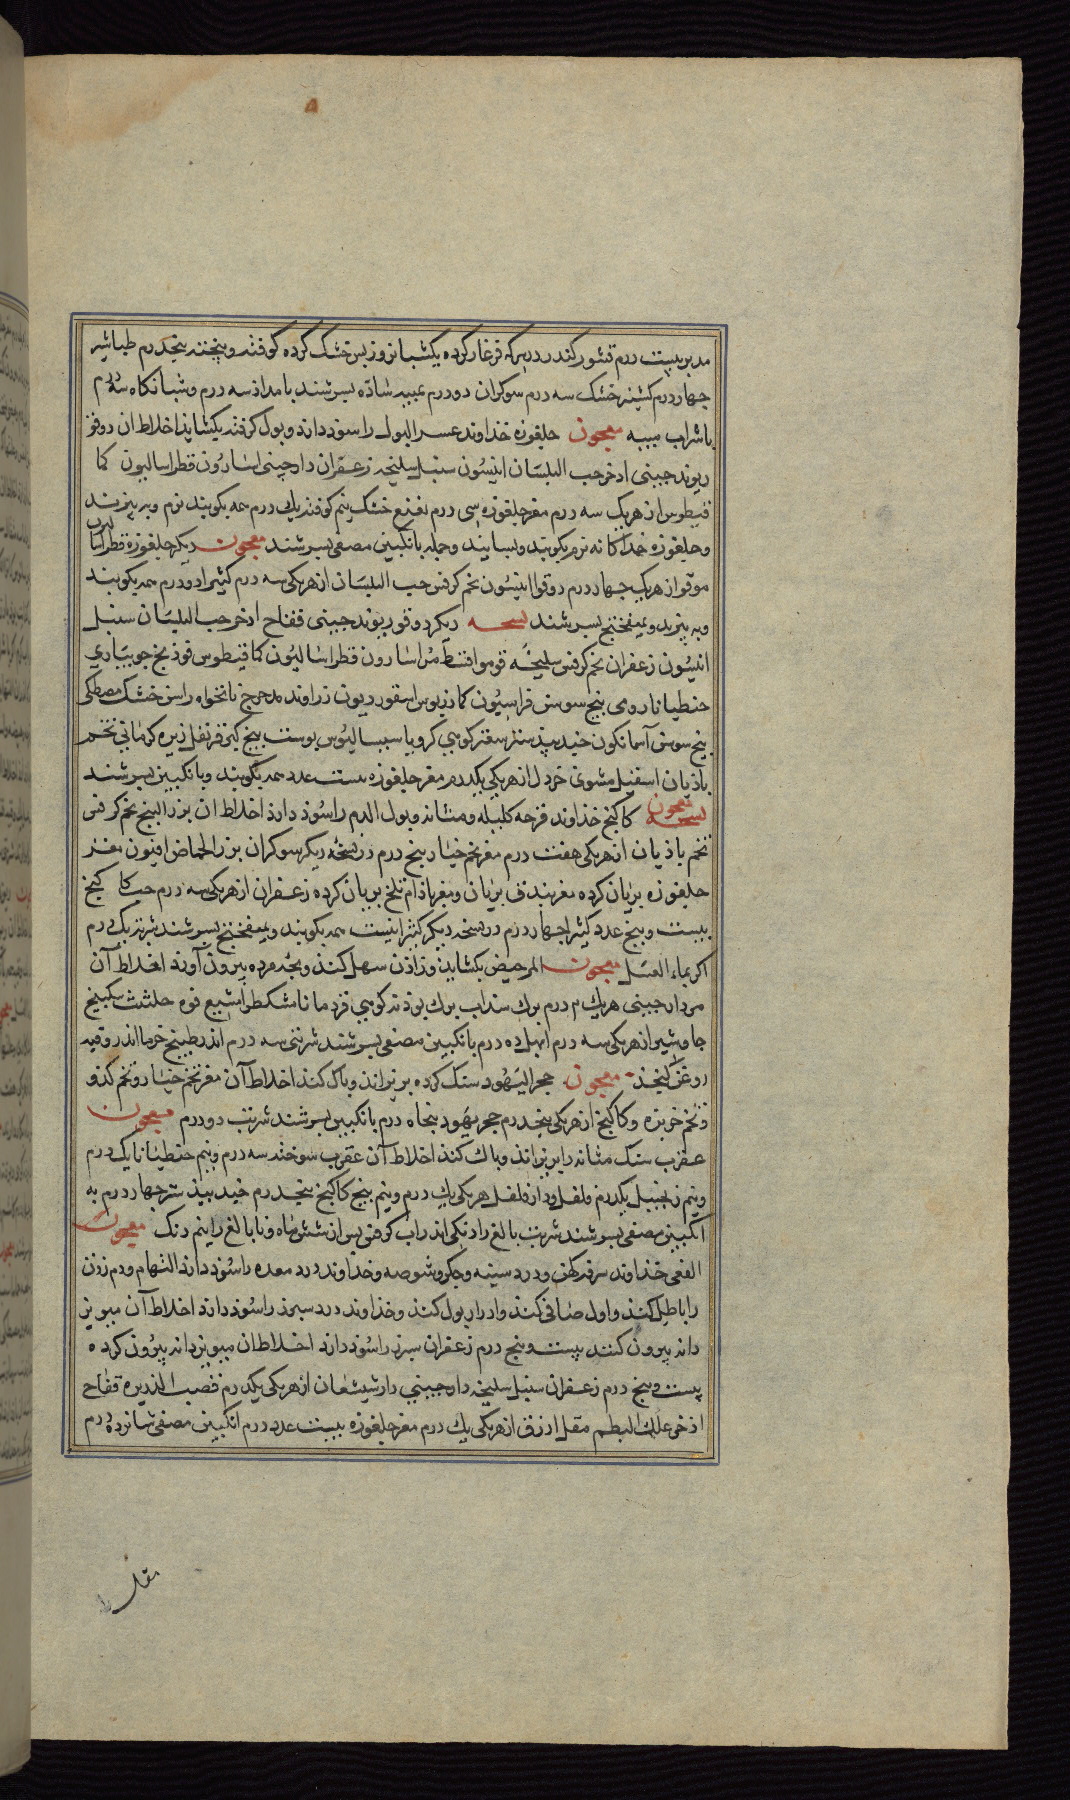 مدبر بیست درم قشور کندر در سرکه فرغار کرده یکشبانروز بس خشک کرده کوفته و بیخته پنجدرم طباشیر
چهار درم کشنیز خشک سه درم سوکران دو درم بمیبه ساذه بسرشند بامداذ سه درم و شبانکاه سه درم
با شراب میبه معجون جلغوزه خذاوند عسر البول را سوذ دارد و بول کرفته بکشاید اخلاط ان دوقو
ریوند جینی اذخر حب البلسان انیسون سنبل سلیخه زعفران دارجینی اسارون فطراسالیون کما
فیطوس از هریک سه درم مغز جلغوزه سی درم نعنع خشک نیم کوفته یک درم همه بکوبند نرم و ببیزند
و جلغوزه جداکانه نرم بکوبند و بسایند و جمله بانکبین مصفی بسرشند معجون دیکر جلغوزه فطراسالیون
موقو از هریک جهار درم دوقو انیسون تخم کرفس حب البلسان از هریکی سه درم کثیرا دو درم همه بکوبند
و ببیزند و بمیفختج بسرشند نسخه دیکر دوقو ریوند جینی فقاح اذخر حب البلسان سنبل
انیسون زعفران تخم کرفس سلیخه فو مو قسط مر اسارون فطراسالیون کمافیطوس فوذنج جویباری
جنطیانا رومی بیخ سوسن فراسیون کماذریوس اسقوردیون زراوند مدحرج نانخواه راسن خشک مصطکی
بیخ سوسن آسمانکون جندبیدستر سعتر کوهی کرویا سیسالیوس بوست بیخ کبر قرنفل زیره کرمانی تخم
باذیان اسقیل مشوی خردل از هریکی یکدرم مغز جلغوزه بیست عدد همه بکوبند و بانکبین بسرشند
نسخه معجون کاکنج خذاوند قرحه کلیه و مثانه و بول الدم را سوذ دارد اخلاط ان بزر البنج تخم کرفس
تخم باذیان از هریکی هفت درم مغز تخم خیار پنج درم در نسخه دیکر سوکران بزر الحماض افیون مغز
جلغوزه بریان کرده مغز بندق بریان و مغز باذام تلخ بریان کرده زعفران از هریکی سه درم حب کاکنج
بیست و پنج عدد کثیرا جهار درم در نسخه دیکر کثیرا نیست همه بکوبند و بمیفختج بسرشند شربتی یک درم
اکر بماء العسل معجون المر حیض بکشاید و زاذن سهل کند و بجه مرده بیرون آورد اخلاط آن
مر دارجینی هریک درم برک سداب برک بوذنه کوهی فردمانا مشکطرامشیع فوه حلتیت سکبینج
جاوشیر از هریکی سه درم ابهل ده درم بانکبین مصفی بسرشند شربتی سه درم اندر طبیخ ترما اندر وقیه
روغن کنجد معجون حجر الیهود سنک کرده بریزاند و باک کند اخلاط آن مغز تخم خیار و تخم کدو
و تخم خربزه و کاکنج از هریکی پنجدرم حجر یهود پنجاه درم بانکبین بسرشند شربت دو درم معجون
عقرب سنک مثانه را بریزاند و باک کند اخلاط آن عقرب سوخته سه درم و نیم جنطیانا یک درم
و نیم زنجبیل یکدرم فلفل و دارفلفل هریکی یک درم و نیم بیخ کاکنج پنجدرم جندبیدستر جهار درم به
انکبین مصفی بسرشند شربت بالغ را دنکی اندر اب کرفس بس از شش ماه و نابالغ را نیم دنک معجون
الفی خذاوند سرفه کهن و درد سینه و جکر و شوصه و خذاوند درد معده را سوذ دارد التهام و دم زدن
را باطل کند و اول صافی کند و ادرار بول کند و خذاوند درد سبرز را سوذ دارد اخلاط آن میویز
دانه بیرون کنند بیست و پنج درم زعفران سبرز را سوذ دارد اخلاط ان میویز دانه بیرون کرده
بیست و پنج درم زعفران سنبل سلیخه دارجینی دارشیشعان از هریکی یکدرم قصب الذریره فقاح
اذخر علک البطم مقل ازرق از هریکی یک درم مغز جلغوزه بیست عدد درم انکبین مصفی شانزده درم
مقل